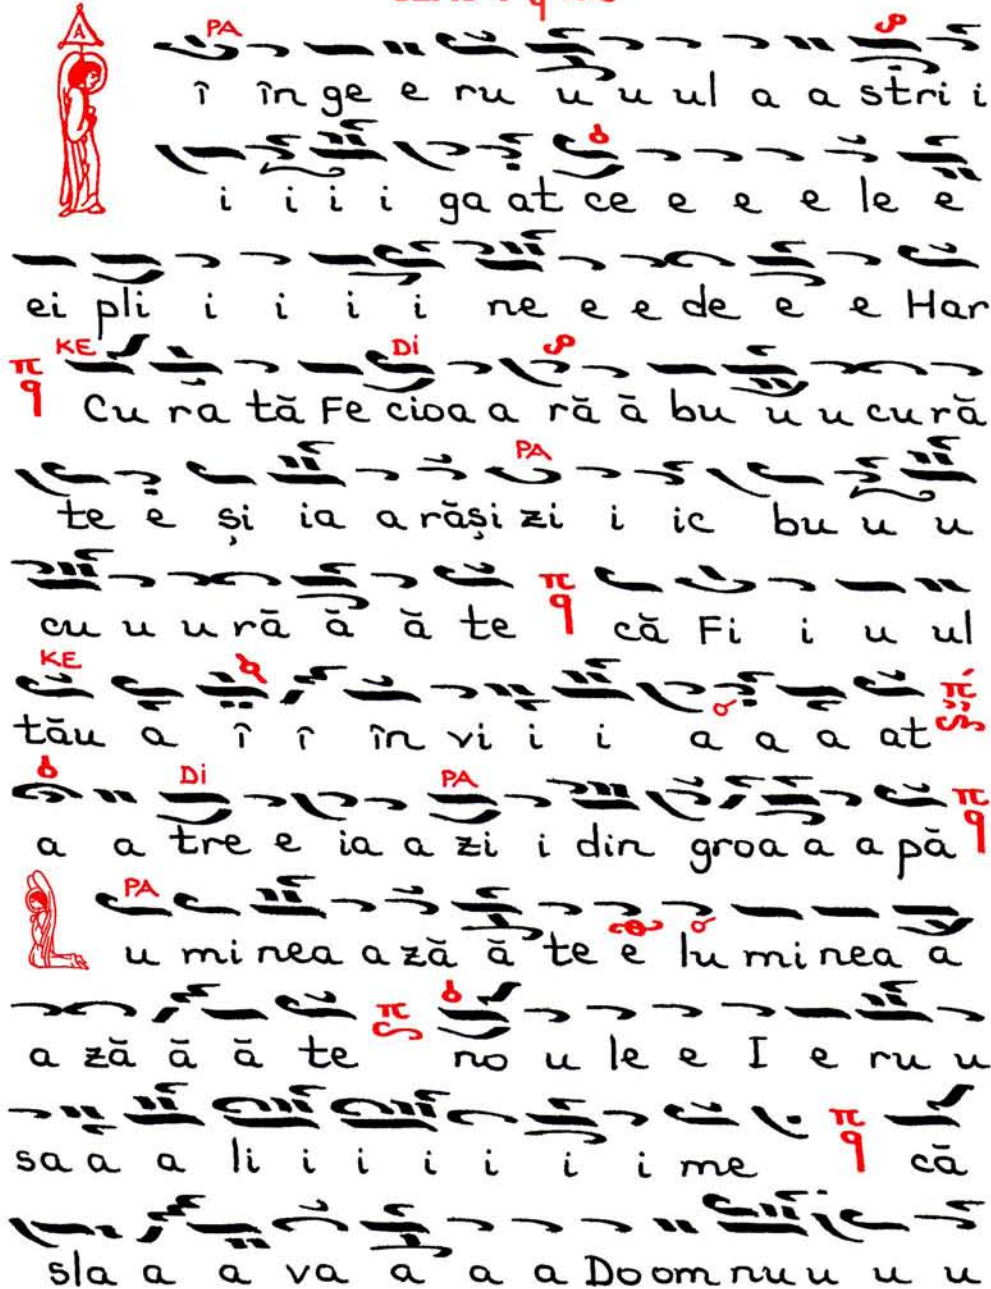 PA
î în ge e ru u u ul a a stri i
i i i i ga at ce e e e le e
ei pli i i i i ne e e de e e Har
KE DI
Cu ra tă Fe cioa a ră ă bu u u cu ră
PA
te e și ia a răși zi i ic bu u u
cu u u ră ă ă te că Fi i u ul
KE
tău a î î în vi i i a a a at
DI PA
a a tre e ia a zi i din groa a a pă
PA
u mi nea a ză ă te e lu mi nea a
a ză ă ă te no u le e I e ru u
sa a a li i i i i i i me că
sla a a va a a a Do om nu u u u